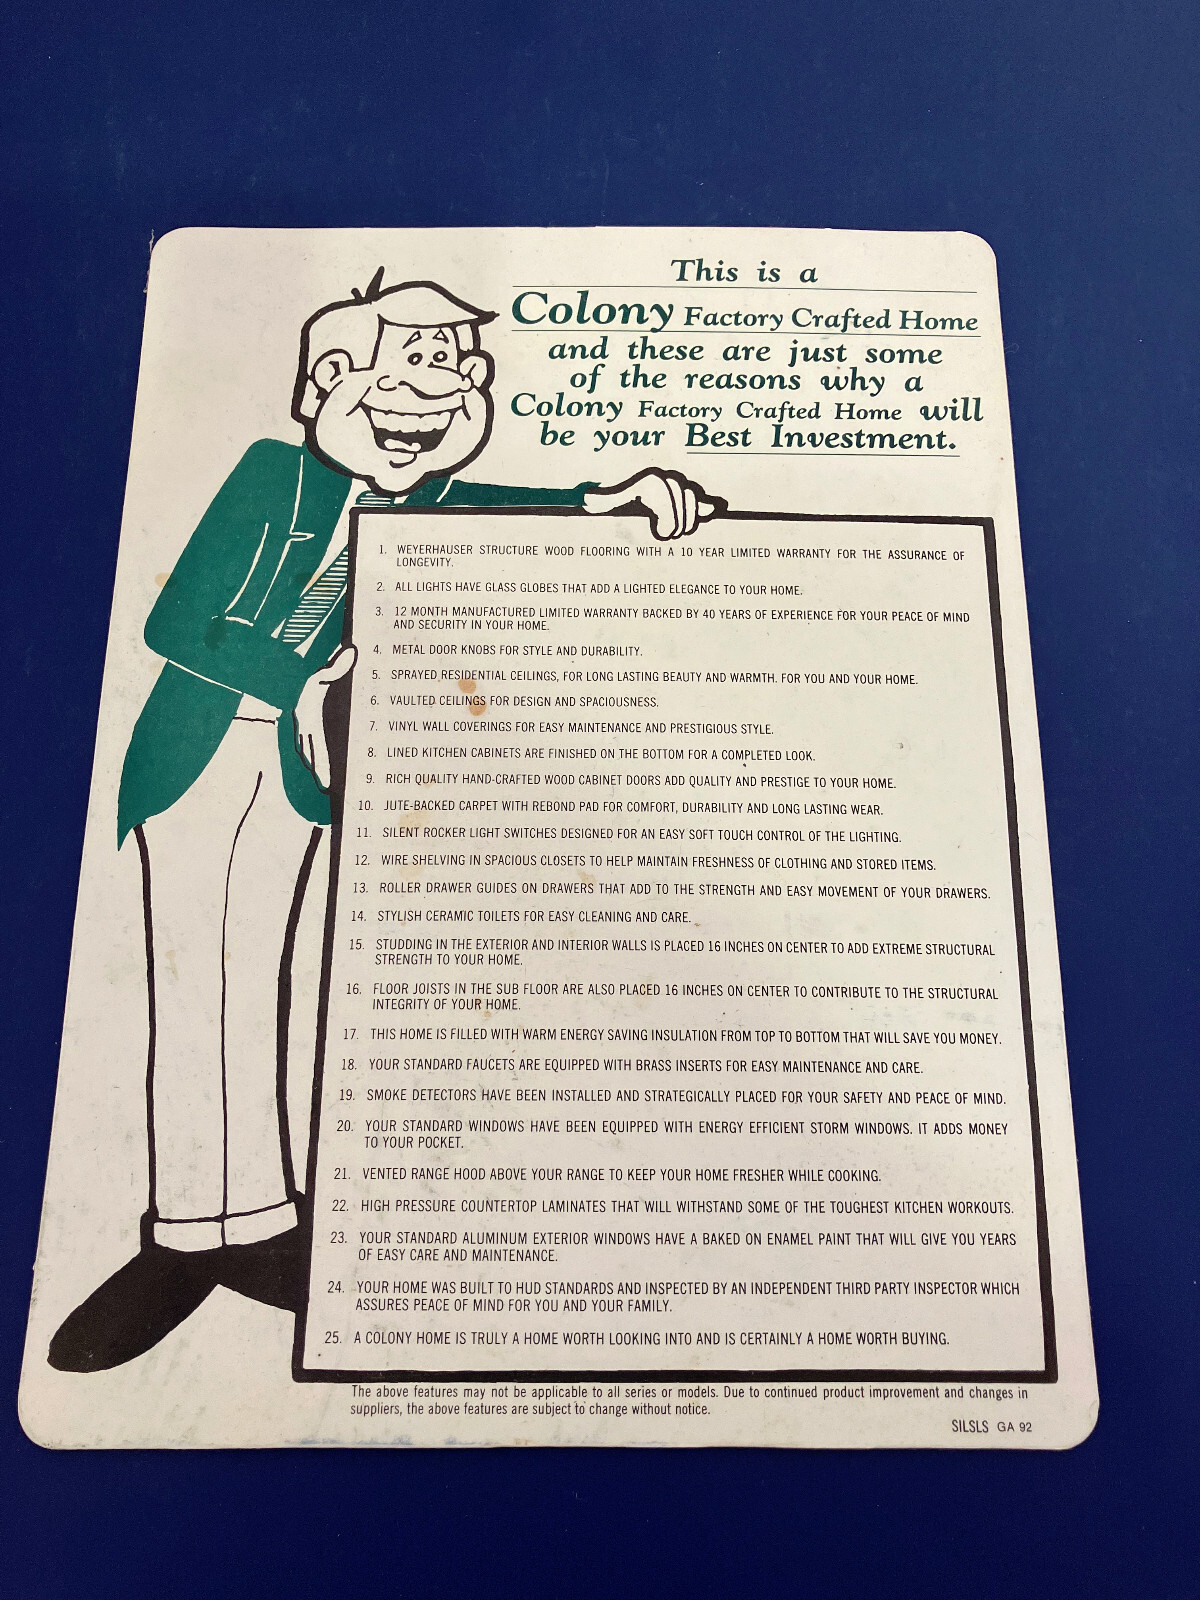 This is a
Colony Factory Crafted Home
and these are just some
of the reasons why a
Colony Factory Crafted Home will
be your Best Investment.
1. WEYERHAUSER STRUCTURE WOOD FLOORING WITH A 10 YEAR LIMITED WARRANTY FOR THE ASSURANCE OF
LONGEVITY.
2. ALL LIGHTS HAVE GLASS GLOBES THAT ADD A LIGHTED ELEGANCE TO YOUR HOME.
3. 12 MONTH MANUFACTURED LIMITED WARRANTY BACKED BY 40 YEARS OF EXPERIENCE FOR YOUR PEACE OF MIND
AND SECURITY IN YOUR HOME.
4. METAL DOOR KNOBS FOR STYLE AND DURABILITY.
5. SPRAYED RESIDENTIAL CEILINGS, FOR LONG LASTING BEAUTY AND WARMTH. FOR YOU AND YOUR HOME.
6. VAULTED CEILINGS FOR DESIGN AND SPACIOUSNESS.
7. VINYL WALL COVERINGS FOR EASY MAINTENANCE AND PRESTIGIOUS STYLE.
8. LINED KITCHEN CABINETS ARE FINISHED ON THE BOTTOM FOR A COMPLETED LOOK.
9. RICH QUALITY HAND-CRAFTED WOOD CABINET DOORS ADD QUALITY AND PRESTIGE TO YOUR HOME.
10. JUTE-BACKED CARPET WITH REBOND PAD FOR COMFORT, DURABILITY AND LONG LASTING WEAR.
11. SILENT ROCKER LIGHT SWITCHES DESIGNED FOR AN EASY SOFT TOUCH CONTROL OF THE LIGHTING.
12. WIRE SHELVING IN SPACIOUS CLOSETS TO HELP MAINTAIN FRESHNESS OF CLOTHING AND STORED ITEMS.
13. ROLLER DRAWER GUIDES ON DRAWERS THAT ADD TO THE STRENGTH AND EASY MOVEMENT OF YOUR DRAWERS.
14. STYLISH CERAMIC TOILETS FOR EASY CLEANING AND CARE.
15. STUDDING IN THE EXTERIOR AND INTERIOR WALLS IS PLACED 16 INCHES ON CENTER TO ADD EXTREME STRUCTURAL
STRENGTH TO YOUR HOME.
16. FLOOR JOISTS IN THE SUB FLOOR ARE ALSO PLACED 16 INCHES ON CENTER TO CONTRIBUTE TO THE STRUCTURAL
INTEGRITY OF YOUR HOME.
17. THIS HOME IS FILLED WITH WARM ENERGY SAVING INSULATION FROM TOP TO BOTTOM THAT WILL SAVE YOU MONEY.
18. YOUR STANDARD FAUCETS ARE EQUIPPED WITH BRASS INSERTS FOR EASY MAINTENANCE AND CARE.
19. SMOKE DETECTORS HAVE BEEN INSTALLED AND STRATEGICALLY PLACED FOR YOUR SAFETY AND PEACE OF MIND.
20. YOUR STANDARD WINDOWS HAVE BEEN EQUIPPED WITH ENERGY EFFICIENT STORM WINDOWS. IT ADDS MONEY
TO YOUR POCKET.
21. VENTED RANGE HOOD ABOVE YOUR RANGE TO KEEP YOUR HOME FRESHER WHILE COOKING.
22. HIGH PRESSURE COUNTERTOP LAMINATES THAT WILL WITHSTAND SOME OF THE TOUGHEST KITCHEN WORKOUTS.
23. YOUR STANDARD ALUMINUM EXTERIOR WINDOWS HAVE A BAKED ON ENAMEL PAINT THAT WILL GIVE YOU YEARS
OF EASY CARE AND MAINTENANCE.
24. YOUR HOME WAS BUILT TO HUD STANDARDS AND INSPECTED BY AN INDEPENDENT THIRD PARTY INSPECTOR WHICH
ASSURES PEACE OF MIND FOR YOU AND YOUR FAMILY.
25. A COLONY HOME IS TRULY A HOME WORTH LOOKING INTO AND IS CERTAINLY A HOME WORTH BUYING.
The above features may not be applicable to all series or models. Due to continued product improvement and changes in
suppliers, the above features are subject to change without notice.
SILSLS GA 92